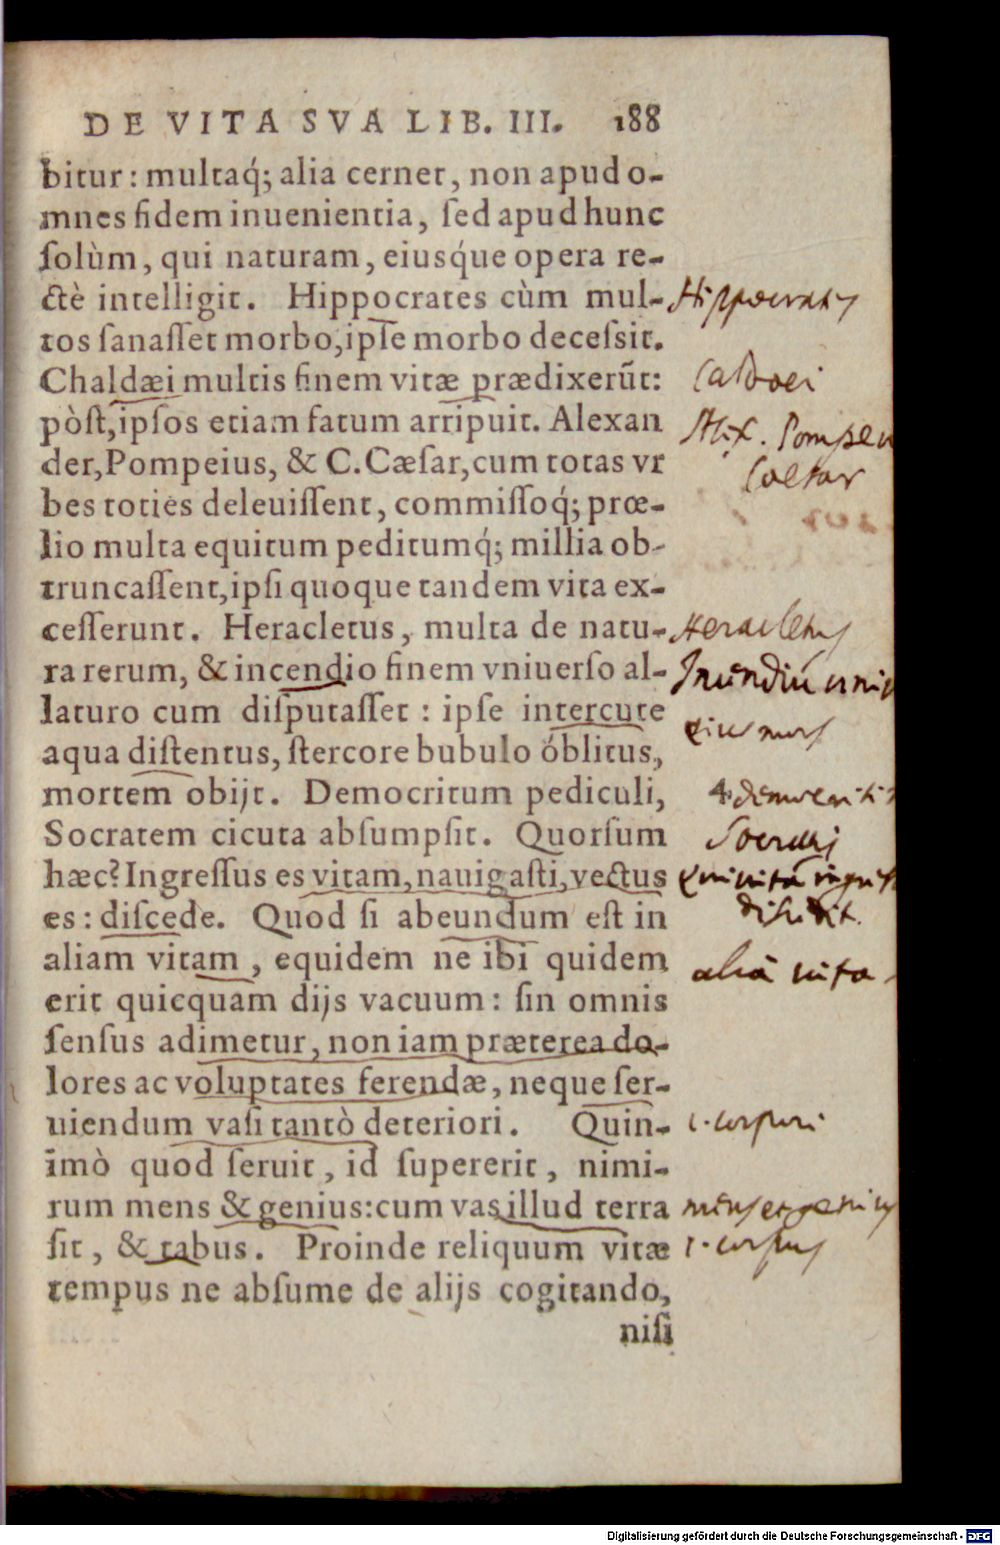 DE VITA SVA LIB. III. 188
bitur: multaq́; alia cernet, non apud o-
mnes fidem inuenientia, ſed apud hunc
ſolùm, qui naturam, eiusq́ue opera re-
ctè intelligit. Hippocrates cùm mul-
Hippocrates
tos ſanaſſet morbo, ipſe morbo deceſsit.
Chaldæi multis finem vitæ prædixerūt:
Caldaei
pòſt, ipſos etiam fatum arripuit. Alexan
Alex. Pompeiu
der, Pompeius, & C. Cæſar, cum totas vr
Caesar
bes toties deleuiſſent, commiſſoq́; prœ-
lio multa equitum peditumq́; millia ob-
truncaſſent, ipſi quoque tandem vita ex-
ceſſerunt. Heracletus, multa de natu-
Heracletus
ra rerum, & incendio finem vniuerſo al-
Incendiū
laturo cum diſputaſſet: ipſe intercute
eius mors
aqua diſtentus, ſtercore bubulo óblitus,
mortem obijt. Democritum pediculi,
democriti
Socratem cicuta abſumpſit. Quorſum
Socratis
hæc? Ingreſſus es vitam, nauigaſti, vectus
es: diſcede. Quod ſi abeundum eſt in
aliam vitam, equidem ne ibi quidem
aliā uita
erit quicquam dijs vacuum: ſin omnis
ſenſus adimetur, non iam præterea do-
lores ac voluptates ferendæ, neque ſer-
uiendum vaſi tantò deteriori. Quin-
i. corpori
imò quod ſeruit, id ſupererit, nimi-
rum mens & genius: cum vas illud terra
mens et genius
ſit, & tabus. Proinde reliquum vitæ
i. corpus
tempus ne abſume de alijs cogitando,
niſi
Digitalisierung gefördert durch die Deutsche Forschungsgemeinschaft - DFG